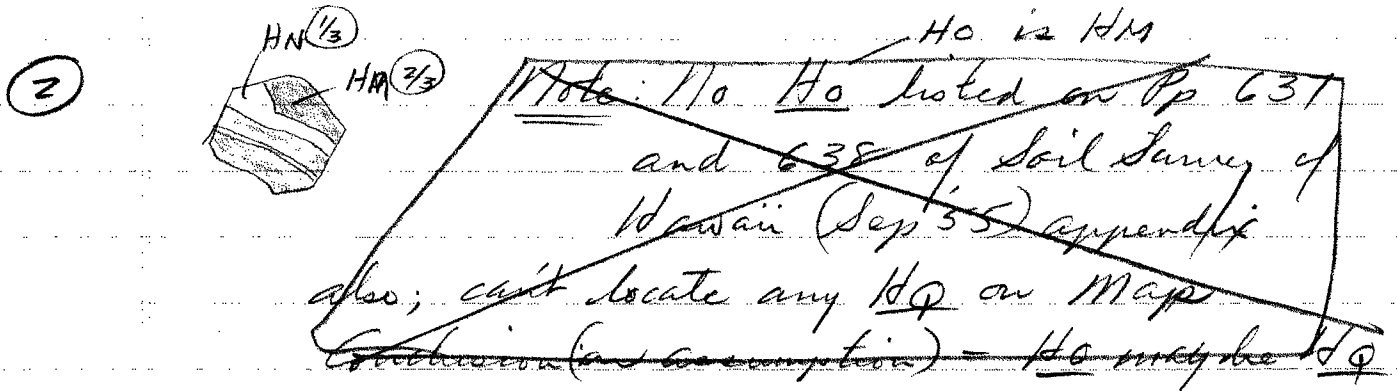 HN 1/3
HO is HM
2
HM 2/3
Note: No HO listed on Pp 637
and 638 of Soil Survey of
Hawaii (Sep '55) appendix
also; can't locate any HQ on Map
Conclusion (an assumption) = HO may be HQ